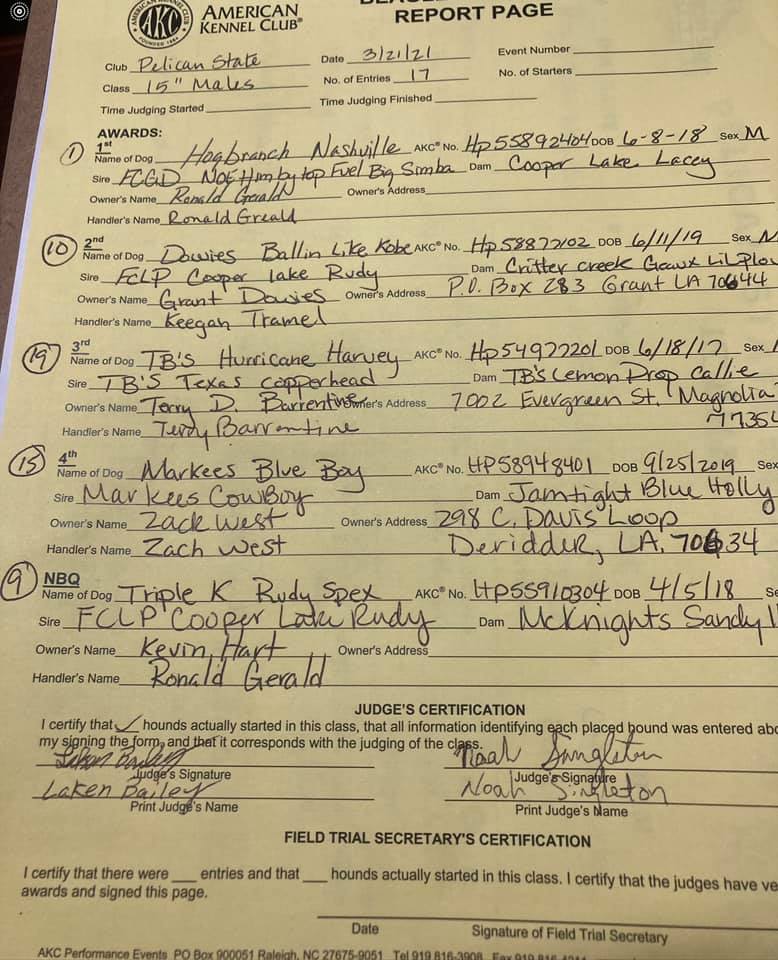 AMERICAN
KENNEL CLUB®
AKC
FOUNDED 1884
REPORT PAGE
Club Pelican State Date 3/21/21 Event Number
Class 15" Males No. of Entries 17 No. of Starters
Time Judging Started Time Judging Finished
AWARDS:
1 1st
Name of Dog Hogbranch Nashville AKC® No. Hp55892404 DOB 6-8-18 Sex M
Sire FCGD NOE Him by top Fuel Big Simba Dam Cooper Lake Lacey
Owner's Name Ronald Gerald Owner's Address
Handler's Name Ronald Greald
10 2nd
Name of Dog Dowies Ballin Like Kobe AKC® No. Hp58872102 DOB 6/11/19 Sex
Sire FCLP Cooper Lake Rudy Dam Critter creek Geaux Lil
Owner's Name Grant Dowies Owner's Address P.O. Box 283 Grant LA 70644
Handler's Name Keegan Tramel
19 3rd
Name of Dog TB's Hurricane Harvey AKC® No. Hp54977201 DOB 6/18/17 Sex
Sire TB'S Texas copperhead Dam TB's Lemon Drop Callie
Owner's Name Terry D. Barrentine Owner's Address 7002 Evergreen St. Magnolia
Handler's Name Terry Barrentine 77354
15 4th
Name of Dog Markees Blue Boy AKC® No. HP58948401 DOB 9/25/2019 Sex
Sire Markees CowBoy Dam Jamtight Blue Holly
Owner's Name Zack West Owner's Address 298 C. Davis Loop
Handler's Name Zach West Deridder, LA. 70634
9 NBQ
Name of Dog Triple K Rudy Spex AKC® No. HP55910304 DOB 4/5/18 Se
Sire FCLP Cooper Lake Rudy Dam McKnights Sandy
Owner's Name Kevin Hart Owner's Address
Handler's Name Ronald Gerald
JUDGE'S CERTIFICATION
I certify that ✓ hounds actually started in this class, that all information identifying each placed hound was entered abo
my signing the form, and that it corresponds with the judging of the class.
Laken Bailey Noah Singleton
Judge's Signature Judge's Signature
Laken Bailey Noah Singleton
Print Judge's Name Print Judge's Name
FIELD TRIAL SECRETARY'S CERTIFICATION
I certify that there were ___ entries and that ___ hounds actually started in this class. I certify that the judges have ve
awards and signed this page.
Date Signature of Field Trial Secretary
AKC Performance Events PO Box 900051 Raleigh, NC 27675-9051 Tel 919 816-3908 Fax 919 816-4211